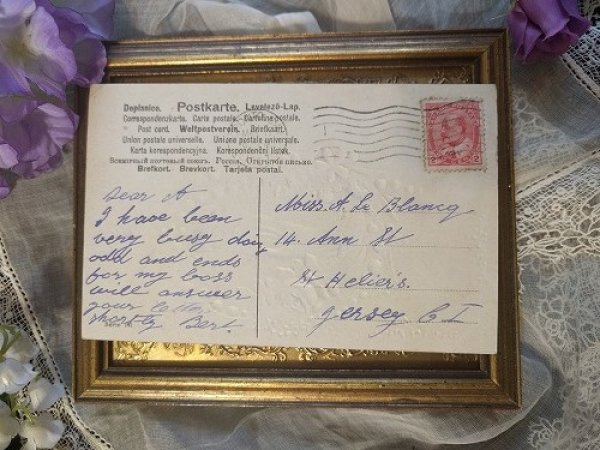 Dopisnice. Postkarte. Levelező-Lap.
Correspondenzkarte. Carte postale. Cartolina postale.
Post card. Weltpostverein. Briefkaart.
Union postale universelle. Unione postale universale.
Karta korespondencyjna. Korespondenční lístek.
Всемірный почтовый союзъ. Россія. Открытое письмо.
Brefkort. Brevkort. Tarjeta postal.
Dear A
I have been
very busy doing
odd and ends
for my boss
will answer
your letter
shortly Bert.
Miss. A. Le Blancq
14. Ann St
St Helier's.
Jersey C I
2 2